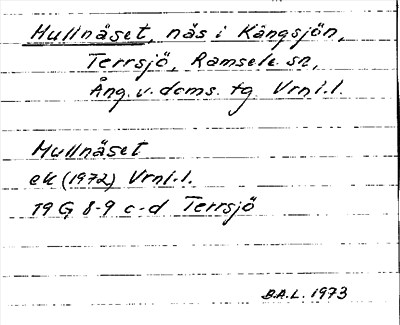 Mullnäset, näs i Kängsjön,
Terrsjö, Ramsele sn,
Ång. v. doms. tg Vrnl.l.
Mullnäset
ek (1972) Vrnl.l.
19 G 8-9 c-d Terrsjö
B.A.L. 1973